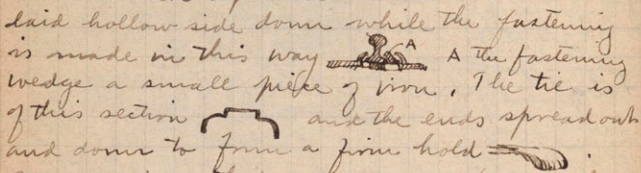 laid hollow side down while the fastening
is made in this way A A the fastening
wedge a small piece of iron. The tie is
of this section and the ends spread out
and down to form a firm hold